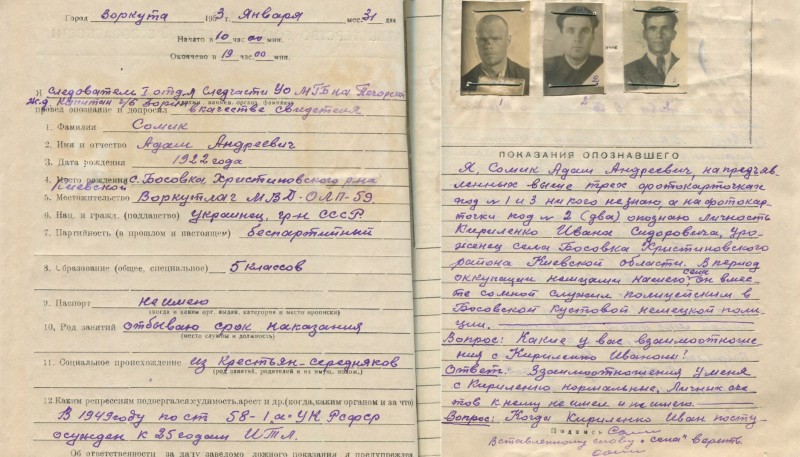 Город Воркута 1953 г. Января мес. 31 дня
Начато в 10 час. 00 мин.
Окончено в 19 час. 00 мин.
Я, Следователь I отд-я Следчасти УО МГБ на Печорской
ж.д. капитан г/б
провел опознание и допросил в качестве свидетеля
1. Фамилия Сомик
2. Имя и отчество Адам Андреевич
3. Дата рождения 1922 года
4. Место рождения с. Босовка, Христиновского р-на
Киевской
5. Местожительство Воркутлаг МВД-ОЛП-59
6. Нац. и гражд. (подданство) украинец, гр-н СССР
7. Партийность (в прошлом и настоящем) беспартийный
8. Образование (общее, специальное) 5 классов
9. Паспорт не имею
(когда и каким орг. выдан, категория и место прописки)
10. Род занятий отбываю срок наказания
(место службы и должность)
11. Социальное происхождение из крестьян-середняков
(род занятий, родителей и их имущ. полож.)
12. Каким репрессиям подвергался: судимость, арест и др. (когда, каким органом и за что)
В 1949 году по ст 58-1 "а" УК РСФСР
осужден к 25 годам ИТЛ.
Об ответственности за дачу заведомо ложного показания я предупрежден
1
2
3
ПОКАЗАНИЯ ОПОЗНАВШЕГО
Я, Сомик Адам Андреевич, на предъяв-
ленных выше трех фотокарточках
под № 1 и 3 никого не знаю, а на фотокар-
точки под № 2 (два) опознаю личность
Кириленко Ивана Сидоровича, уро-
женец села Босовка Христиновского
района Киевской области. В период
оккупации немцами нашего села он вмес-
те со мной служил полицейским в
Босовской кустовой немецкой поли-
ции.
Вопрос: Какие у вас взаимоотноше-
ния с Кириленко Иваном?
Ответ: Взаимоотношения у меня
с Кириленко нормальные. Личных сче-
тов к нему не имел и не имею.
Вопрос: Когда Кириленко Иван посту-
Подпись Сомик
Вставленному слову "села" верить.
Сомик